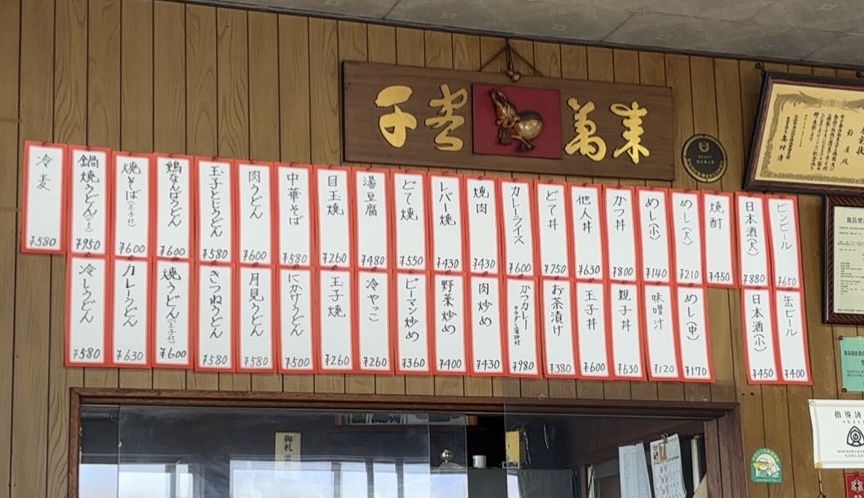 千客萬来
ビンビール ¥650
日本酒(大) ¥880
焼酎 ¥450
めし(大) ¥210
めし(小) ¥140
かつ丼 ¥800
他人丼 ¥630
どて丼 ¥750
カレーライス ¥600
焼肉 ¥430
レバー焼 ¥430
どて焼 ¥550
湯豆腐 ¥480
目玉焼 ¥260
中華そば ¥580
肉うどん ¥600
玉子とじうどん ¥580
鶏なんばうどん ¥600
焼そば(玉子付) ¥600
鍋焼うどん ¥950
冷麦 ¥580
缶ビール ¥400
日本酒(小) ¥450
めし(中) ¥170
味噌汁 ¥120
親子丼 ¥630
玉子丼 ¥600
お茶漬け ¥380
かつカレー ¥980
肉炒め ¥430
野菜炒め ¥400
ピーマン炒め ¥360
冷やっこ ¥260
玉子焼 ¥260
にかけうどん ¥500
月見うどん ¥580
きつねうどん ¥580
焼うどん(玉子付) ¥600
カレーうどん ¥630
冷しうどん ¥580
御札